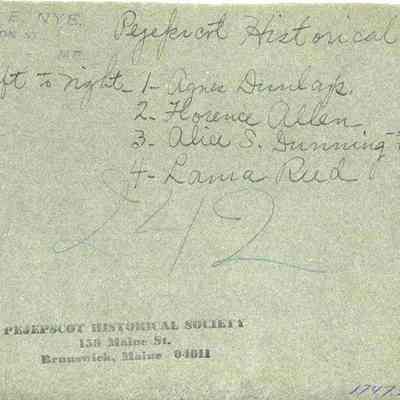 E. NYE.
ON ST
ME.
Pejepscot Historical
ft to right - 1- Agnes Dunlap.
2- Florence Allen
3- Alice S. Dunning
4- Lama Reed
242
PEJEPSCOT HISTORICAL SOCIETY
158 Maine St.
Brunswick, Maine 04011
1747.